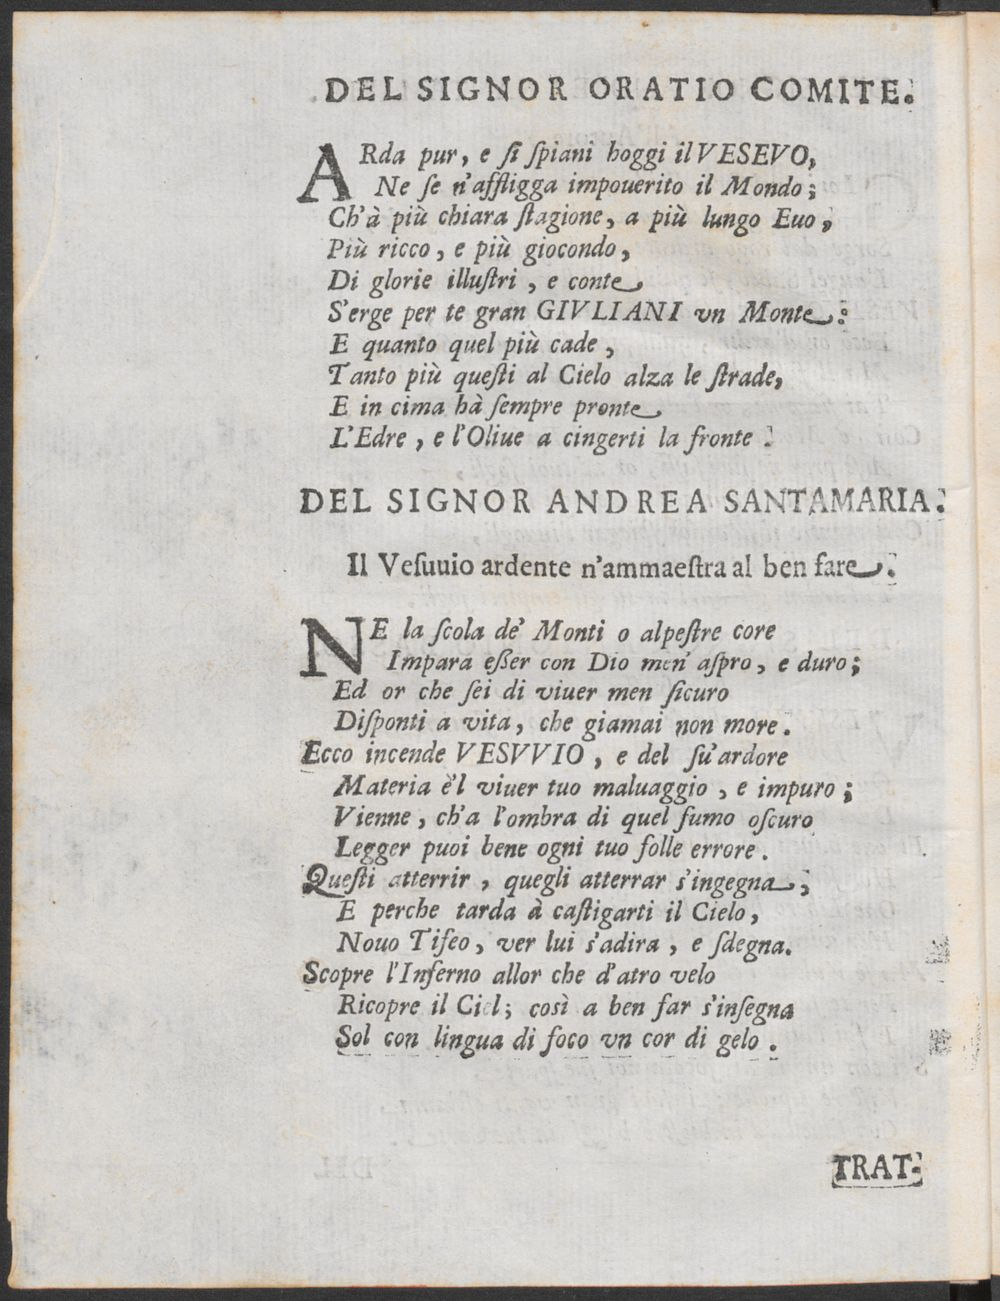 DEL SIGNOR ORATIO COMITE.
ARda pur, e ſi ſpiani hoggi il VESEVO,
Ne ſe n'affligga impouerito il Mondo;
Ch'à più chiara ſtagione, a più lungo Euo,
Più ricco, e più giocondo,
Di glorie illuſtri, e conte
S'erge per te gran GIVLIANI vn Monte:
E quanto quel più cade,
Tanto più queſti al Cielo alza le ſtrade,
E in cima hà ſempre pronte
L'Edre, e l'Oliue a cingerti la fronte.
DEL SIGNOR ANDREA SANTAMARIA.
Il Veſuuio ardente n'ammaeſtra al ben fare.
NE la ſcola de' Monti o alpeſtre core
Impara eßer con Dio men' aſpro, e duro;
Ed or che ſei di viuer men ſicuro
Diſponti a vita, che giamai non more.
Ecco incende VESVVIO, e del ſu'ardore
Materia è'l viuer tuo maluaggio, e impuro;
Vienne, ch'a l'ombra di quel fumo oſcuro
Legger puoi bene ogni tuo folle errore.
Queſti atterrir, quegli atterrar s'ingegna;
E perche tarda à caſtigarti il Cielo,
Nouo Tifeo, ver lui s'adira, e ſdegna.
Scopre l'Inferno allor che d'atro velo
Ricopre il Ciel; così a ben far s'inſegna
Sol con lingua di foco vn cor di gelo.
TRAT-